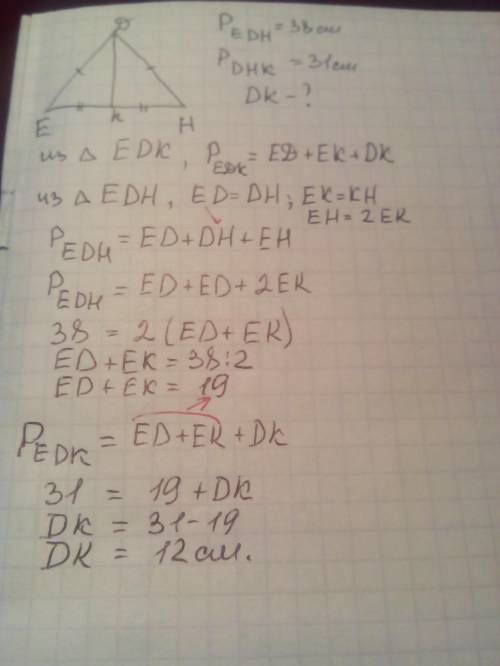 D
P EDH = 38 см
P DHK = 31 см
DK - ?
E K H
из △ EDK, P EDK = ED + EK + DK
из △ EDH, ED = DH; EK = KH
EH = 2EK
P EDH = ED + DH + EH
P EDH = ED + ED + 2EK
38 = 2 (ED + EK)
ED + EK = 38 : 2
ED + EK = 19
P EDK = ED + EK + DK
31 = 19 + DK
DK = 31 - 19
DK = 12 см.